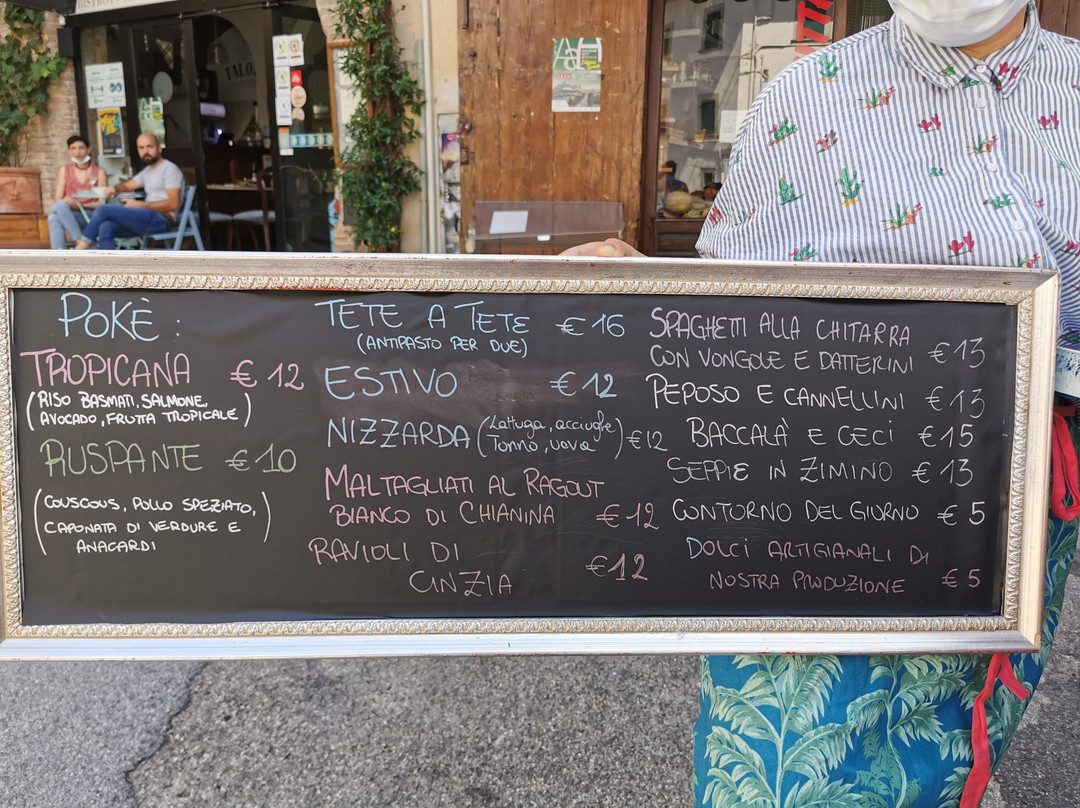 POKÈ :
TROPICANA € 12
(RISO BASMATI, SALMONE,
AVOCADO, FRUTTA TROPICALE)
RUSPANTE € 10
(COUSCOUS, POLLO SPEZIATO,
CAPONATA DI VERDURE E
ANACARDI)
TETE A TETE € 16
(ANTIPASTO PER DUE)
ESTIVO € 12
NIZZARDA (Lattuga, acciughe € 12
Tonno, uova)
MALTAGLIATI AL RAGOUT
BIANCO DI CHIANINA € 12
RAVIOLI DI
CINZIA € 12
SPAGHETTI ALLA CHITARRA
CON VONGOLE E DATTERINI € 13
PEPOSO E CANNELLINI € 13
BACCALÀ E CECI € 15
SEPPIE IN ZIMINO € 13
CONTORNO DEL GIORNO € 5
DOLCI ARTIGIANALI DI
NOSTRA PRODUZIONE € 5